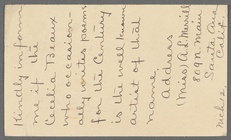 Kindly inform
me if the
Cecelia Beaux
who occasion-
ally writes poems
for the Century
is the well known
artist of that
name
Address
(Miss) A. L. Merrill
809 N. Main
Santa Ana
Calif.